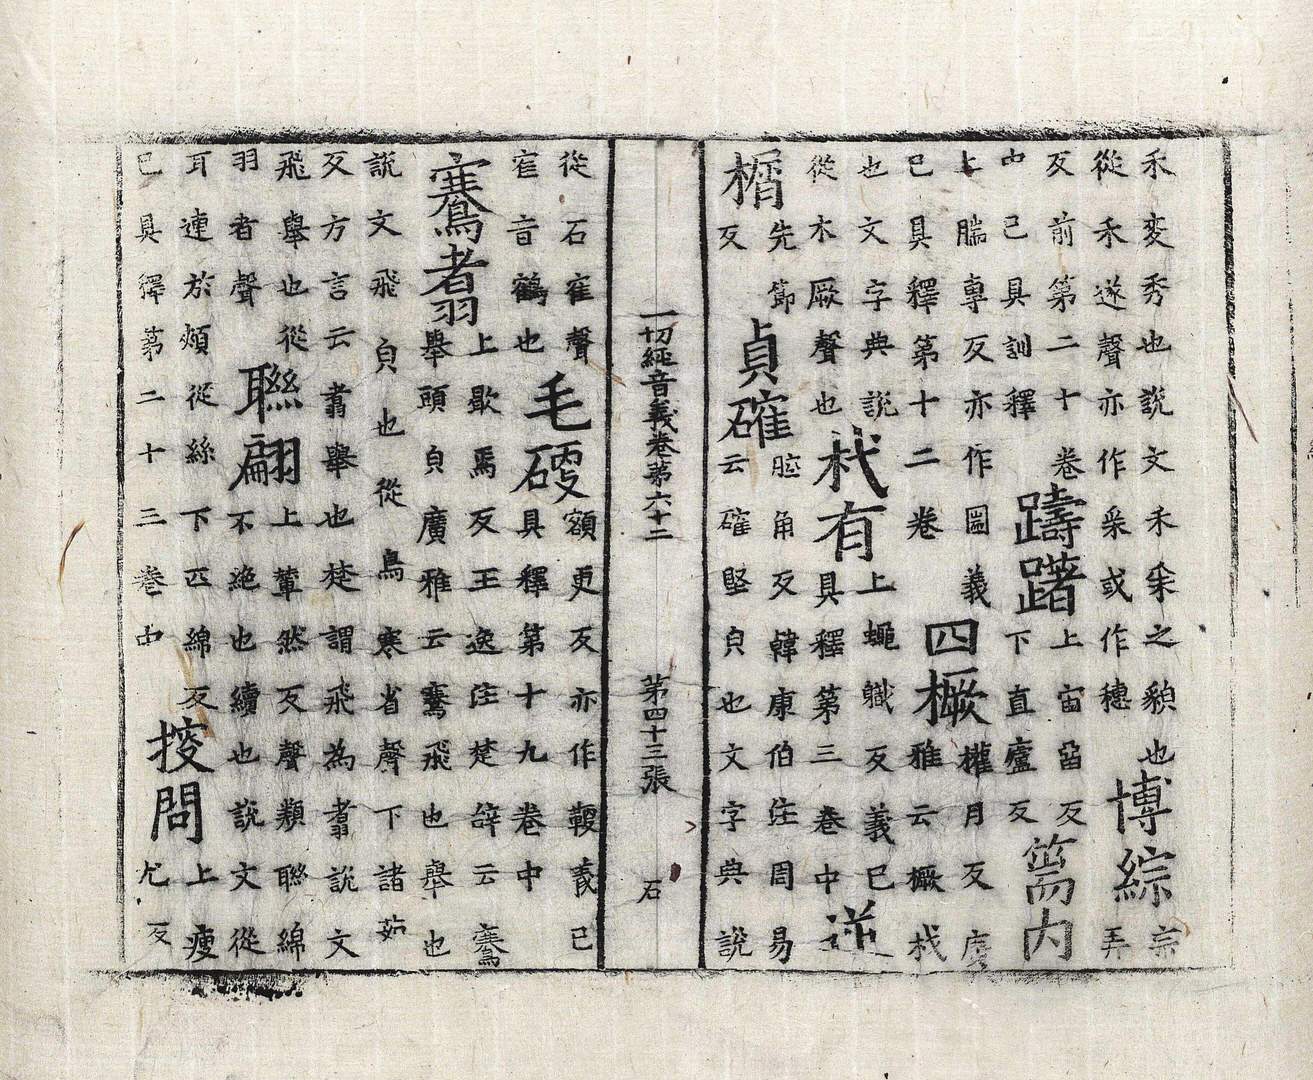 禾変秀也說文禾釆之貌也
從禾遂聲亦作采或作穗
博綜
宗
弄
反前第二十卷
中已具訓釋
躊躇
上宙畱反
下直廬反
篅内
上腨専反亦作圌義
已具釋第十二卷
四橛
權月反廣
雅云橛杙
也文字典說
從木厥聲也
杙有
上蠅軄反義已
具釋第三卷中
逆
楯
先節
反
貞確
腔角反韓康伯注周易
云確堅皃也文字典說
一切經音義卷第六十二
第四十三張
石
從石隺聲
隺音鶴也
毛硬
額更反亦作鞕義已
具釋第十九卷中
鶱翥
上歇焉反王逸注楚辞云鶱
舉頭皃廣雅云鶱飛也舉也
說文飛皃也從鳥寒省聲下諸茹
反方言云翥舉也楚謂飛為翥說文
飛舉也從
羽者聲
聯翩
上輦然反聲類聯綿
不絶也續也說文從
耳連於頰從絲下匹綿反
已具釋第二十三卷中
㨮問
上瘦
尤反